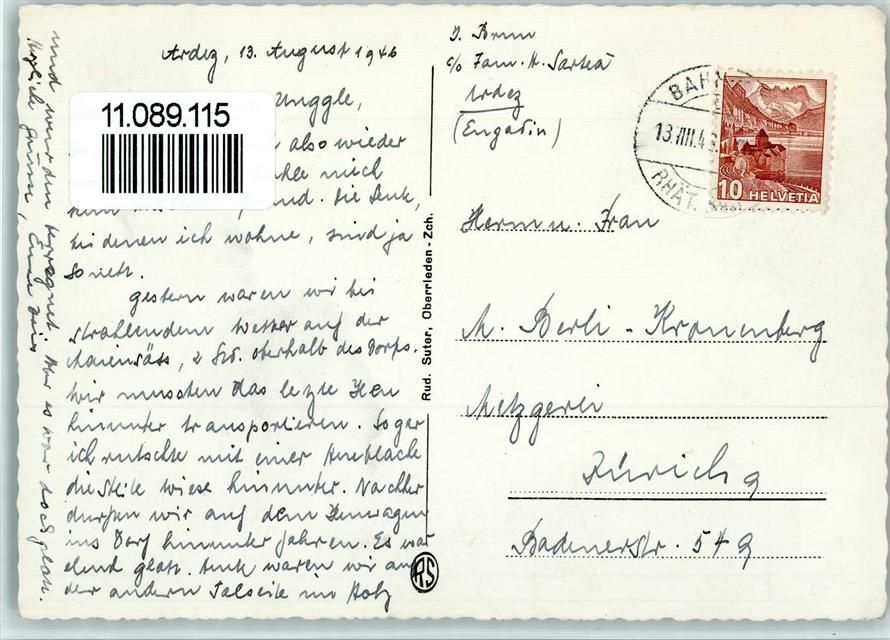 Ardez, 13. August 1946
Unggle,
also wieder
mich
und. Die Leute,
bei denen ich wohne, sind ja
so nett.
Gestern waren wir bei
strahlendem Wetter auf der
2 Std. oberhalb des Dorfs.
Wir mussten das letzte Heu
hinunter transportieren. Sogar
ich rutschte mit einer Heublache
die steile Wiese hinunter. Nachher
durften wir auf dem Heuwagen
ins Dorf hinunter fahren. Es war
elend glatt. Heute waren wir auf
der andern Talseite im Holz
und wurden verregnet. Aber es war doch glatt.
Herzliche Grüsse,
D. Brun
c/o Fam. H. Sarteà
Ardez
(Engadin)
BAHN
13.VIII.46
RHÄT.
10 HELVETIA
Herrn u. Frau
M. Berli-Kronenberg
Metzgerei
Zürich 9
Badenerstr. 549
Rud. Suter, Oberrieden - Zch.
RS
11.089.115